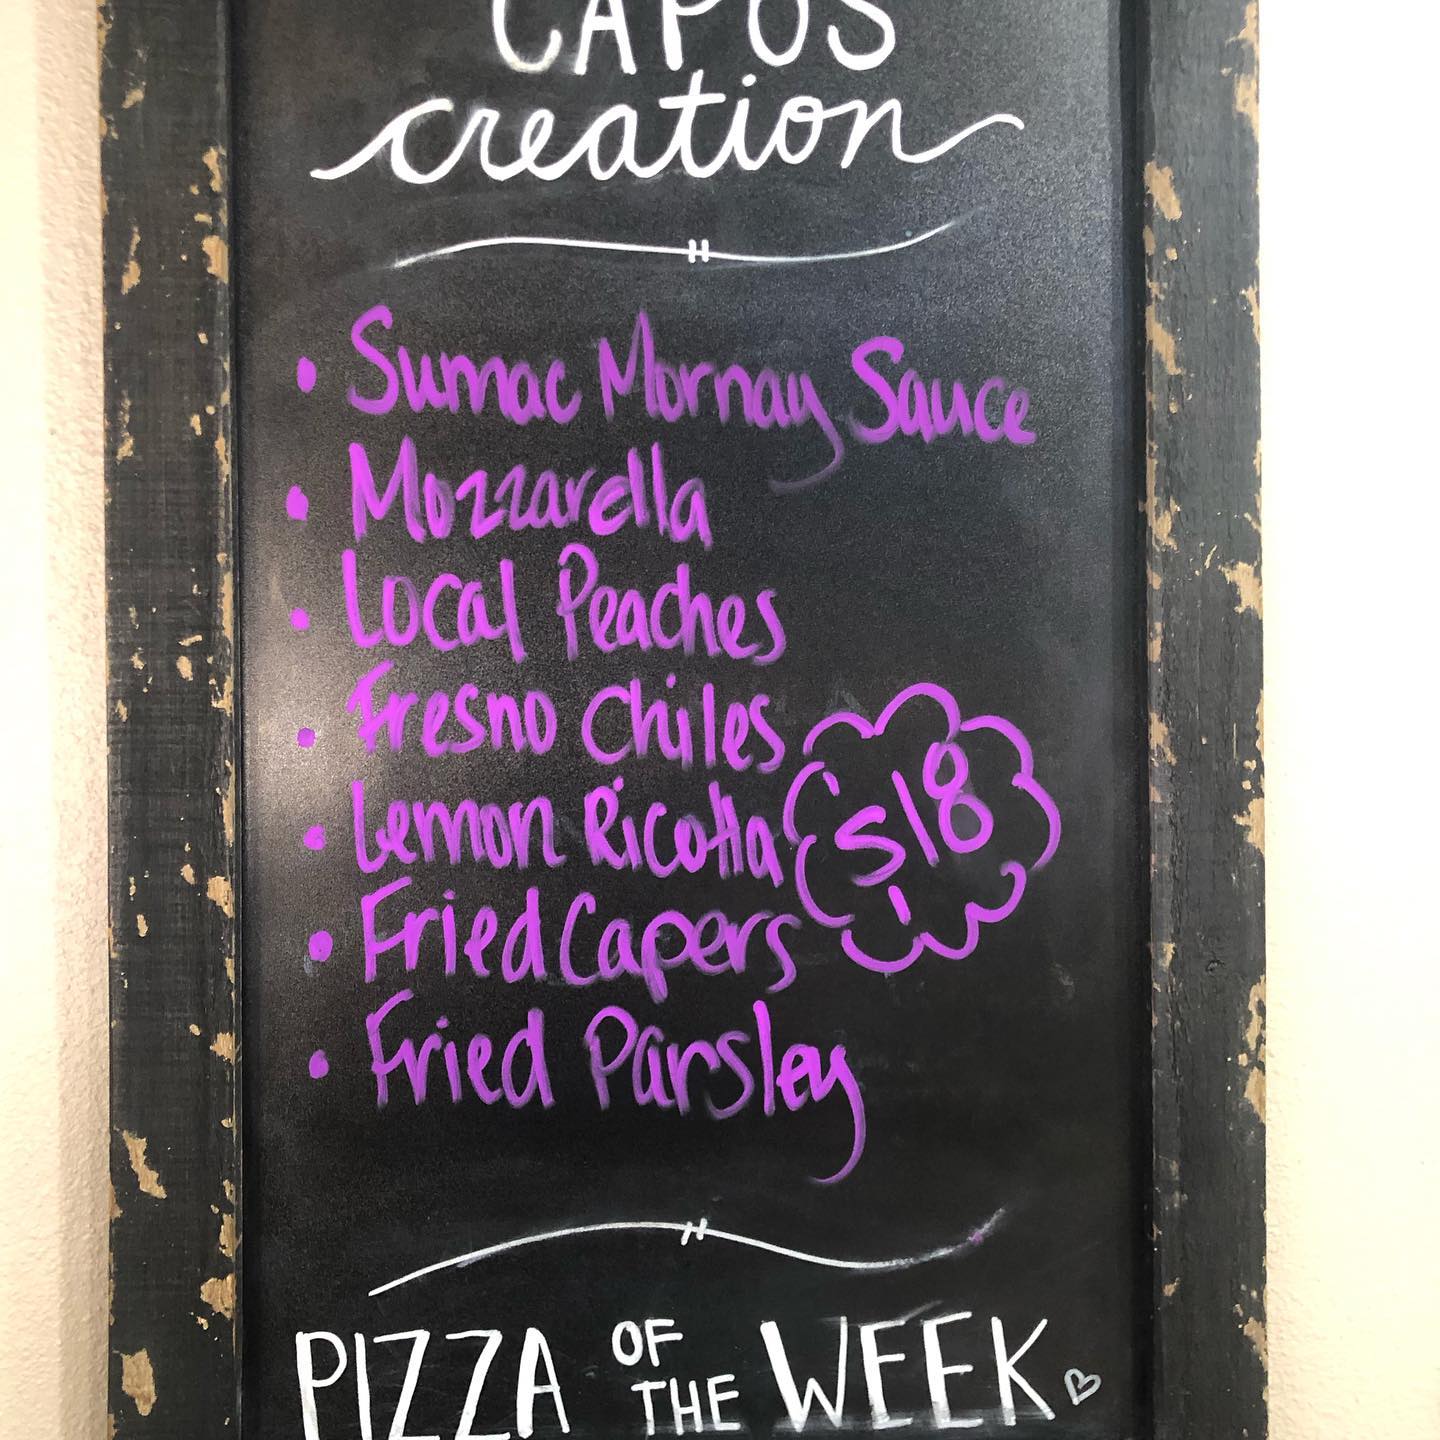 CAPOS
creation
• Sumac Mornay Sauce
• Mozzarella
• Local Peaches
• Fresno Chiles
• Lemon Ricotta
• Fried Capers
• Fried Parsley
$18
PIZZA OF THE WEEK